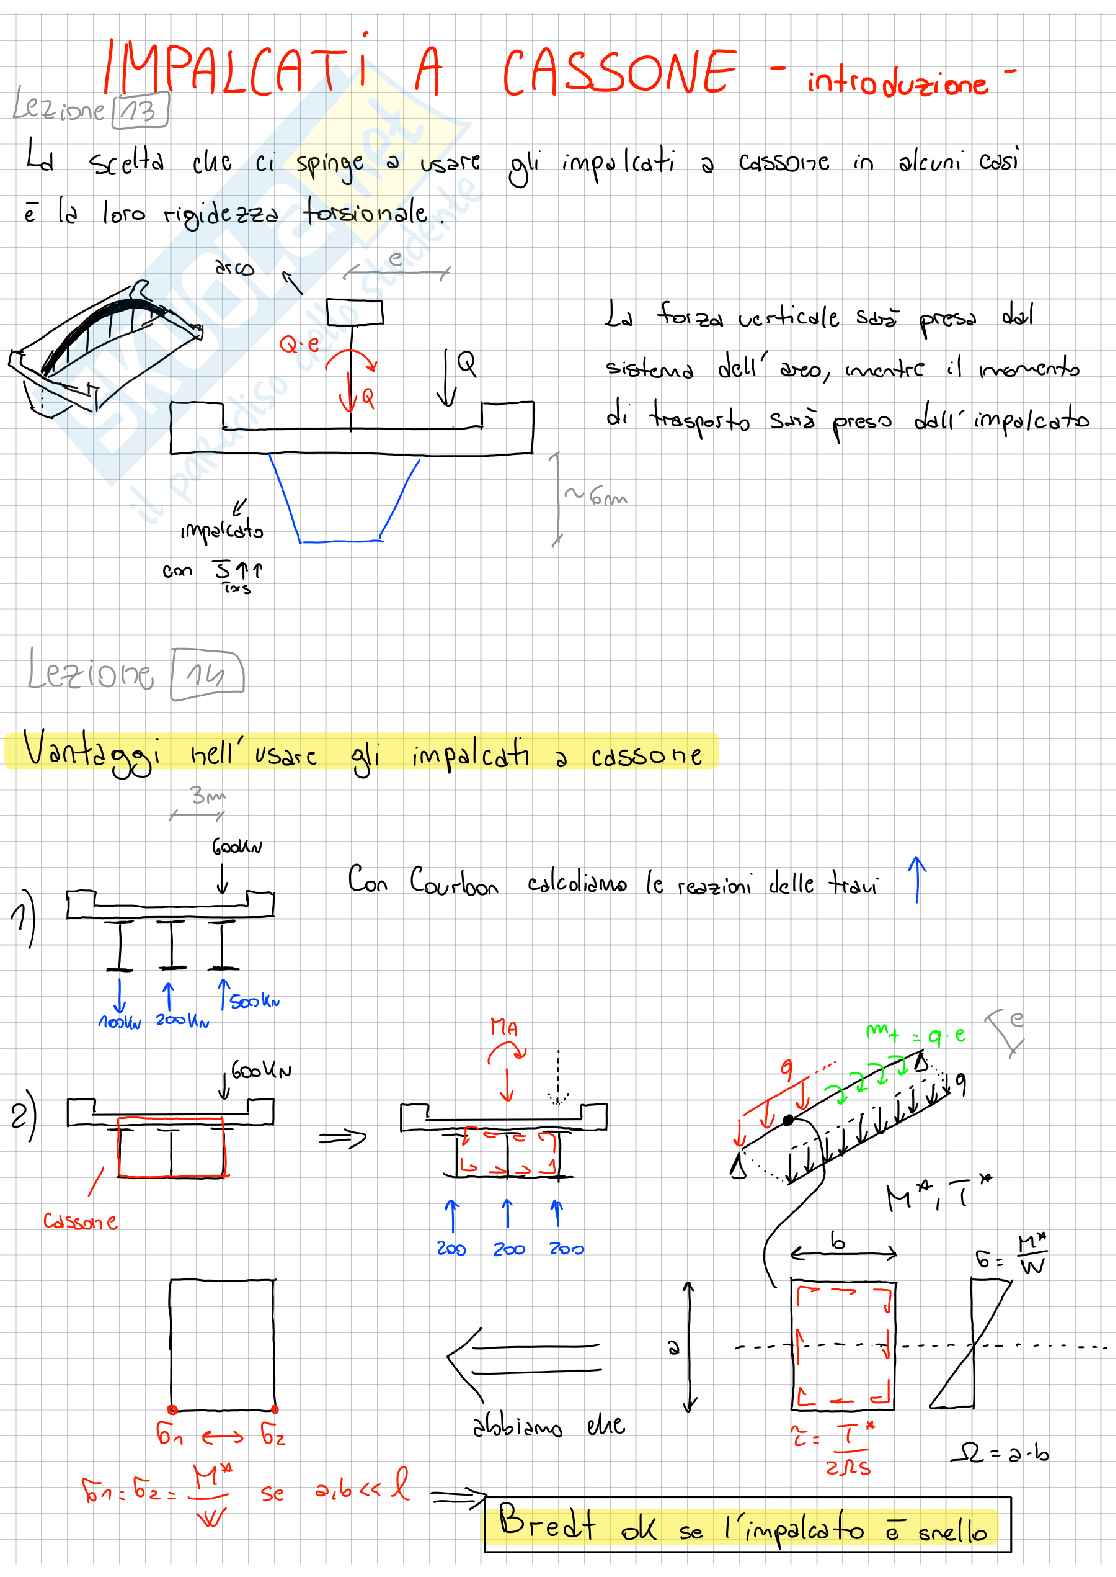 IMPALCATI A CASSONE - introduzione -
Lezione 13
La scelta che ci spinge a usare gli impalcati a cassone in alcuni casi
è la loro rigidezza torsionale.
arco
e
Q·e
Q
Q
La forza verticale sarà presa dal
sistema dell'arco, mentre il momento
di trasporto sarà preso dall'impalcato
~6m
impalcato
con S↑↑
Tors
SKUOLA.net
il paradiso dello studente
Lezione 14
Vantaggi nell'usare gli impalcati a cassone
3m
600KN
1)
Con Courbon calcoliamo le reazioni delle travi ↑
100KN 200KN 500KN
2)
600KN
cassone
⇒
MA
200 200 200
q
mt = q·e
e
q
M*, T*
b
a
σ = M*/W
τ = T*/2Ωs
Ω = a·b
abbiamo che
σ1 ↔ σ2
σ1 = σ2 = M*/W se a,b << l ⇒
Bredt ok se l'impalcato è snello